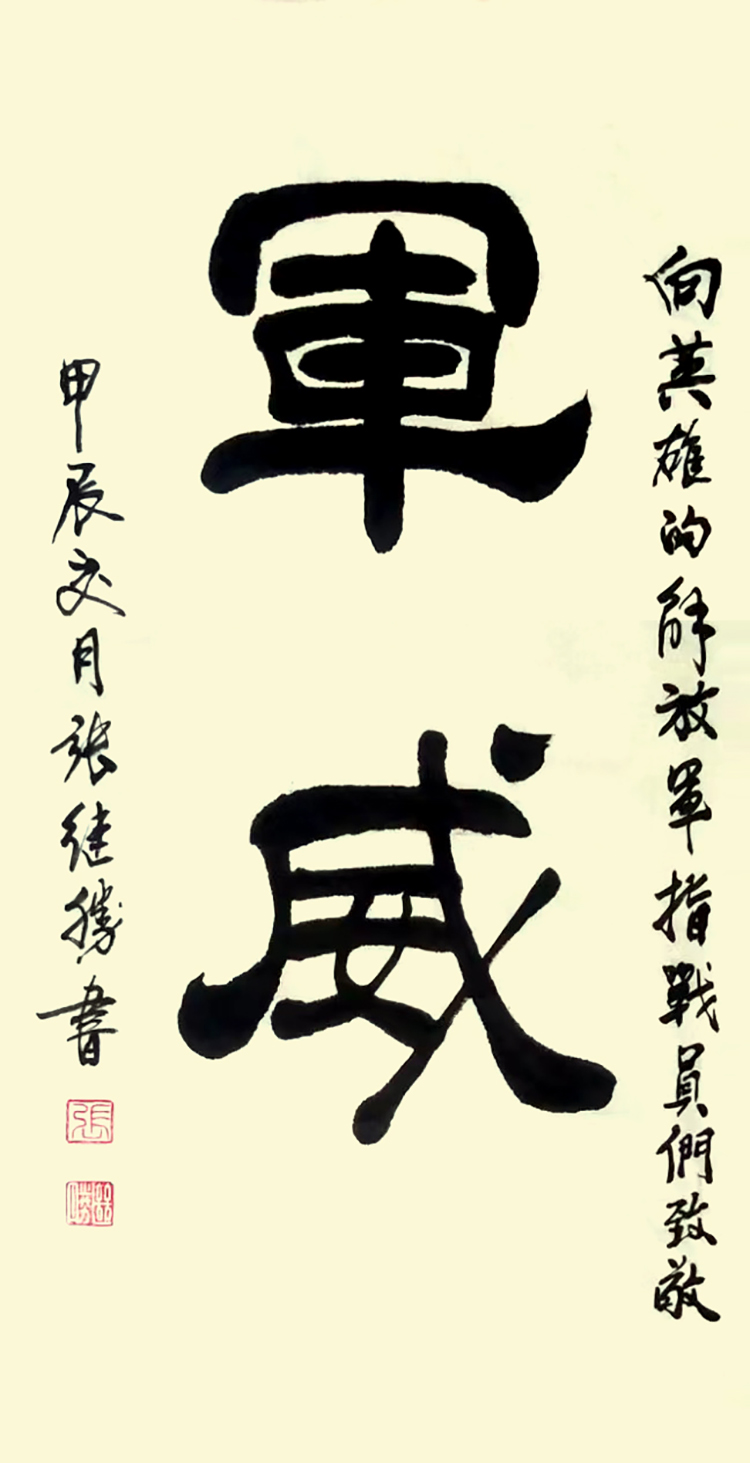 向英雄的解放軍指戰員們致敬
軍威
甲辰交月張继勝書
張
继勝